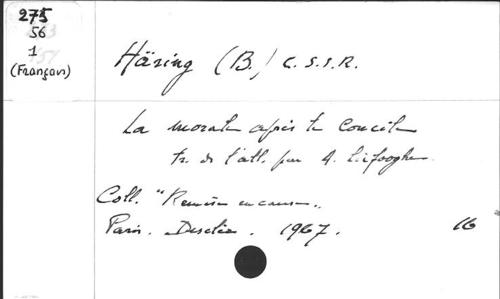 275
56
1
(Français)
Häring (B.) C.S.S.R.
La morale après le Concile
tr. de l'all. par A. Liefooghe
Coll. "Remise en cause".
Paris. Desclée. 1967. 16